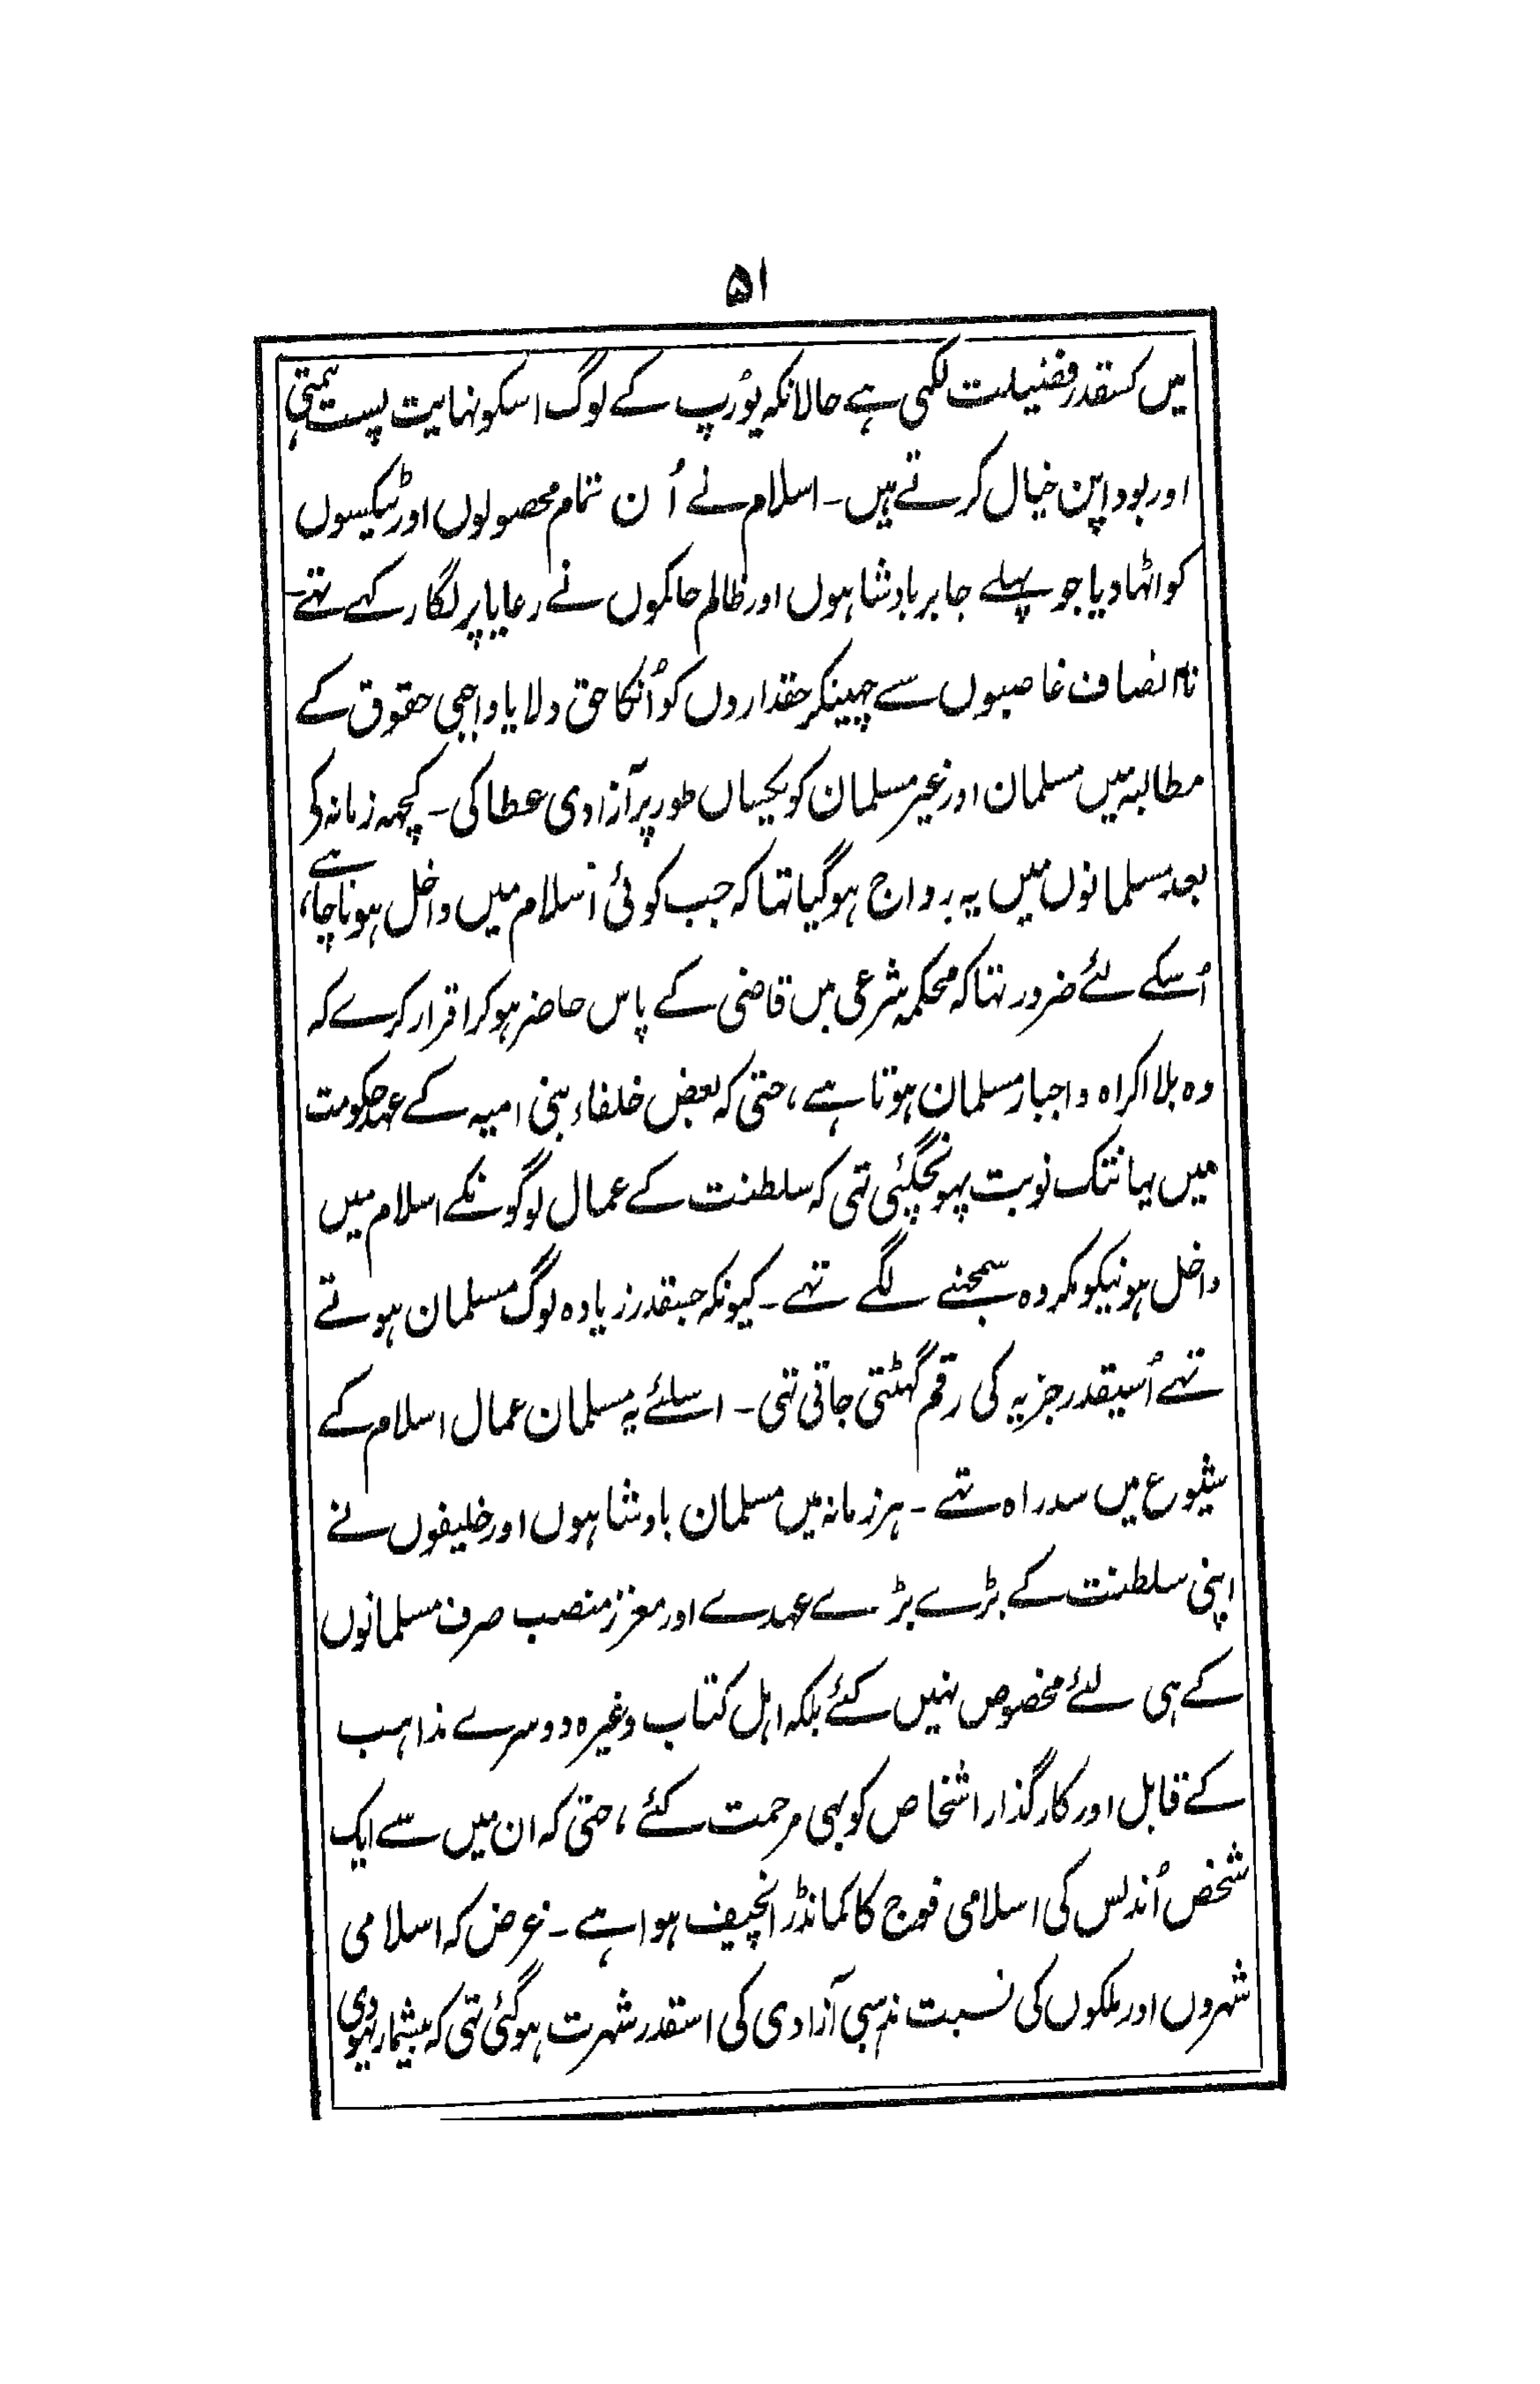 ۵۱
میں کسقدر فضیلت لکہی ہے حالانکہ یورُپ کے لوگ اسکو نہایت پست ہمتی
اور بوداپن خیال کرتے ہیں۔ اسلام نے اُن تمام محصولوں اور ٹیکسوں
کو اٹہا دیا جو پہلے جابر بادشاہوں اور ظالم حاکموں نے رعایا پر لگا رکہے تہے۔
ناانصاف غاصبوں سے چہینکر حقداروں کو اُنکا حق دلایا واجبی حقوق کے
مطالبہ میں مسلمان اور غیر مسلمان کو یکیساں طور پر آزادی عطا کی۔ کچہہ زمانہ کے
بعد مسلمانوں میں یہ رواج ہوگیا تہا کہ جب کوئی اسلام میں داخل ہونا چاہے،
اُسکے لئے ضرور تہا کہ محکمہ شرعی میں قاضی کے پاس حاضر ہو کر اقرار کرے کہ
وہ بلا اکراہ و اجبار مسلمان ہوتا ہے، حتی کہ بعض خلفاء بنی امیہ کے عہد حکومت
میں یہانتک نوبت پہونچگئی تہی کہ سلطنت کے عمال لوگونکے اسلام میں
داخل ہونیکو مکروہ سمجہنے لگے تہے۔ کیونکہ جسقدر زیادہ لوگ مسلمان ہوتے
تہے اُسیقدر جزیہ کی رقم گہٹتی جاتی تہی۔ اسلئے یہ مسلمان عمال اسلام کے
شیوع میں سدراہ تہے۔ ہر زمانہ میں مسلمان بادشاہوں اور خلیفوں نے
اپنی سلطنت کے بڑے بڑے عہدے اور معزز منصب صرف مسلمانوں
کے ہی لئے مخصوص نہیں کئے بلکہ اہل کتاب وغیرہ دوسرے مذاہب
کے قابل اور کارگذار اشخاص کو بہی مرحمت کئے، حتی کہ ان میں سے ایک
شخص اُندلس کی اسلامی فوج کا کمانڈر انچیف ہوا ہے۔ غرض کہ اسلامی
شہروں اور ملکوں کی نسبت مذہبی آزادی کی اسقدر شہرت ہوگئی تہی کہ بیشمار یہودی